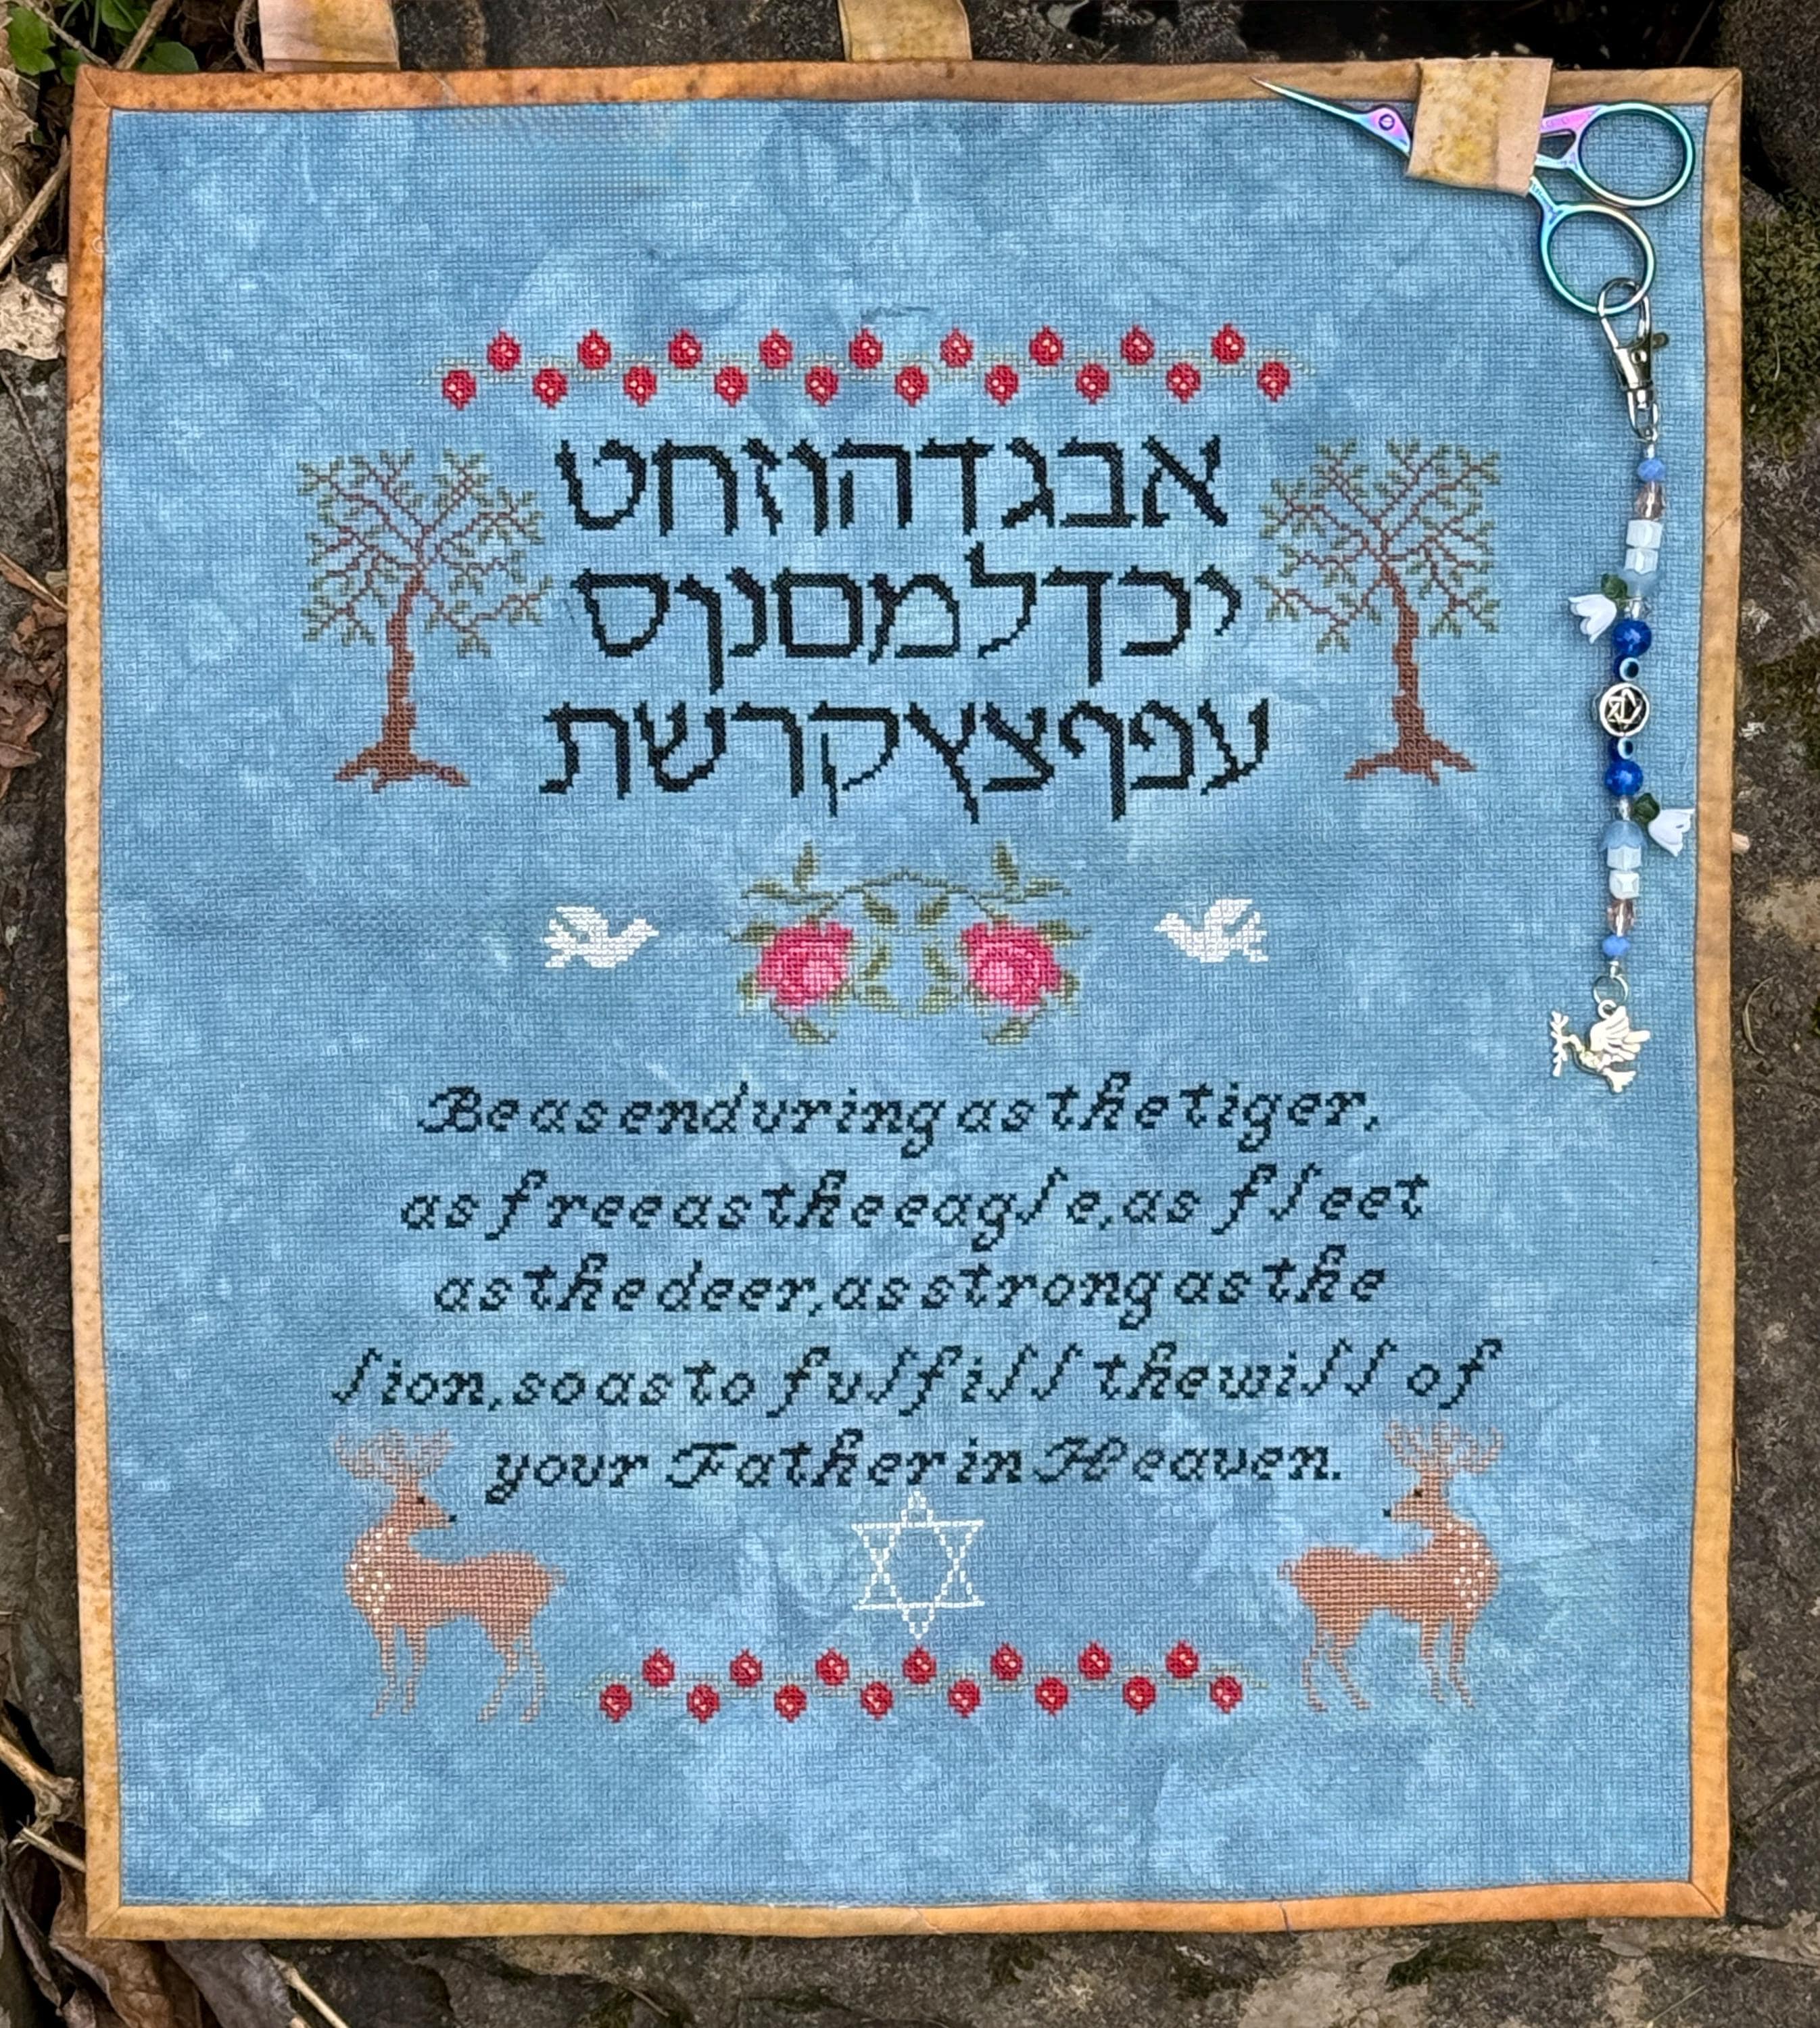 אבגדהוזחט
יכךלמםנןס
עפףצץקרשת
Be as enduring as the tiger,
as free as the eagle, as fleet
as the deer, as strong as the
lion, so as to fulfill the will of
your Father in Heaven.